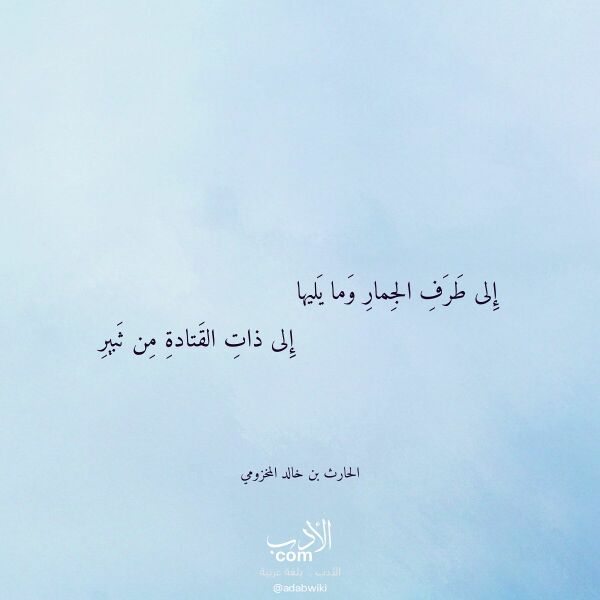 إِلى طَرَفِ الجِمارِ وَما يَليها
إِلى ذاتِ القَتادةِ مِن ثَبيرِ
الحارث بن خالد المخزومي
الأدب
com
الأدب .. بلغة عربية
@adabwiki